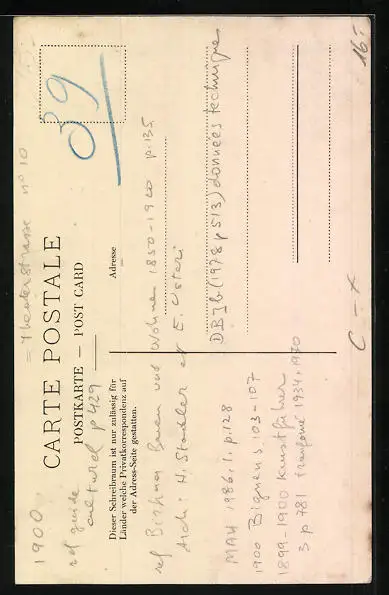 1900 = Theaterstrasse n° 10
CARTE POSTALE
POSTKARTE — POST CARD
89
16.-
ref guide culturel p 429
Dieser Schreibraum ist nur zulässig für
Länder welche Privatkorrespondenz auf
der Adress-Seite gestatten.
Adresse
ref Birkner Bauen und Wohnen 1850-1920 p. 135
Archi: H. Stadler et E. Usteri
DBZb (1978 p 513) données techniques
MAH 1986, 1. p. 128
1900 Bignens 103-107
1899-1900 Kunstführer
3 p 781 transformé 1934, 1970
C - x